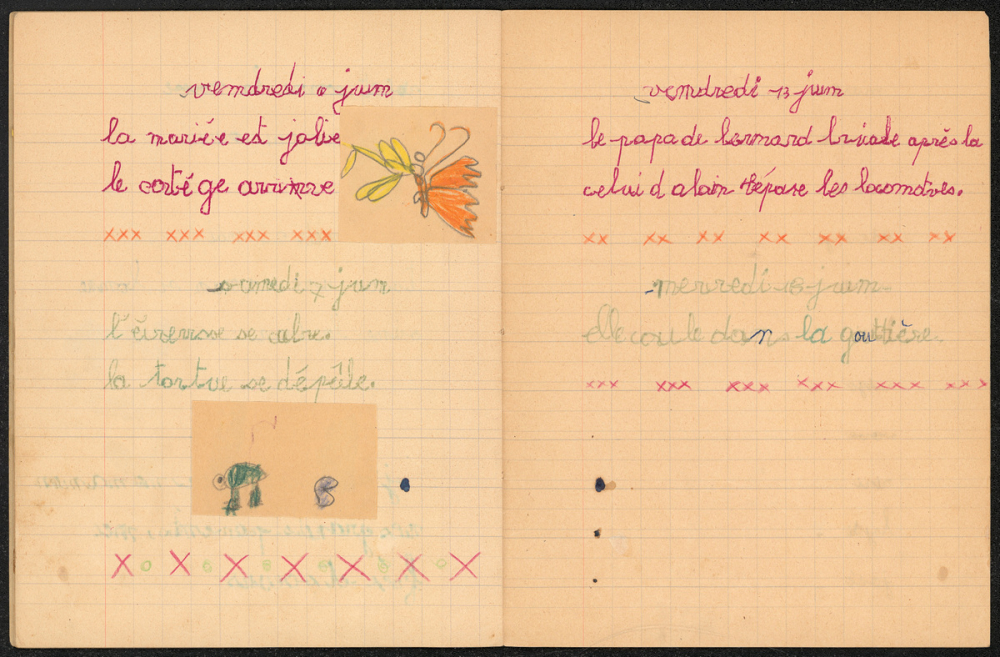 vendredi 6 juin
la mariée est jolie
le cortége arrive
xxx xxx xxx xxx
samedi 7 juin
l'écrevisse se
la tortue se dépêle.
X o X o X o X o X o X o X
vendredi 13 juin
le papa de bernard après la
celui d alain répare les locomotves.
xx xx xx xx xx xx xx
mercredi 18 juin
elle coule dans la gouttière.
xxx xxx xxx xxx xxx xxx